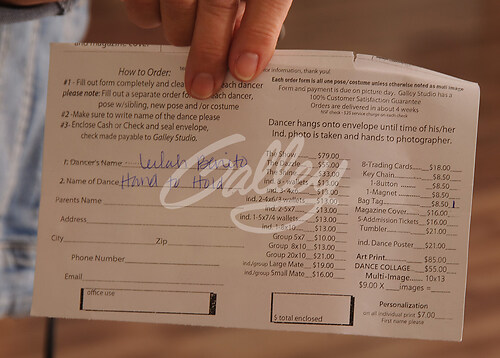 and magazine cover
your information, thank you!
How to Order:
#1 - Fill out form completely and clea each dancer
please note: Fill out a separate order for each dancer,
pose w/sibling, new pose and/or costume
#2 -Make sure to write name of the dance please
#3 - Enclose Cash or Check and seal envelope,
check made payable to Galley Studio.
1. Dancer's Name Lulah Benito
2. Name of Dance Hand to Hold
Parents Name
Address
City Zip
Phone Number
Email
office use
Each order form is all one pose/costume unless otherwise noted as multi image
Form and payment is due on picture day. Galley Studio has a
100% Customer Satisfaction Guarantee
Orders are delivered in about 4 weeks
Dancer hangs onto envelope until time of his/her
Ind. photo is taken and hands to photographer.
The Show $79.00
The Dazzle $55.00
The Shine $33.00
ind. 8 - wallets $13.00
ind. 2-4x6 $13.00
ind. 2-4x6/3 wallets $13.00
ind. 2-5x7 $13.00
ind. 1-5x7/4 wallets $13.00
ind. 1-8x10 $13.00
Group 5x7 $10.00
Group 8x10 $13.00
Group 20x10 $21.00
ind./group Large Mate $19.00
ind/group Small Mate $16.00
$ total enclosed
8-Trading Cards $18.00
Key Chain $8.50
1-Button $8.50
1-Magnet $8.50
Bag Tag $8.50 1
Magazine Cover $16.00
5-Addmission Tickets $16.00
Tumbler $21.00
ind. Dance Poster $21.00
Art Print $85.00
DANCE COLLAGE $55.00
Multi-Image 10x13
$9.00 X images =
Personalization
on all individual print $7.00
First name please
Galley